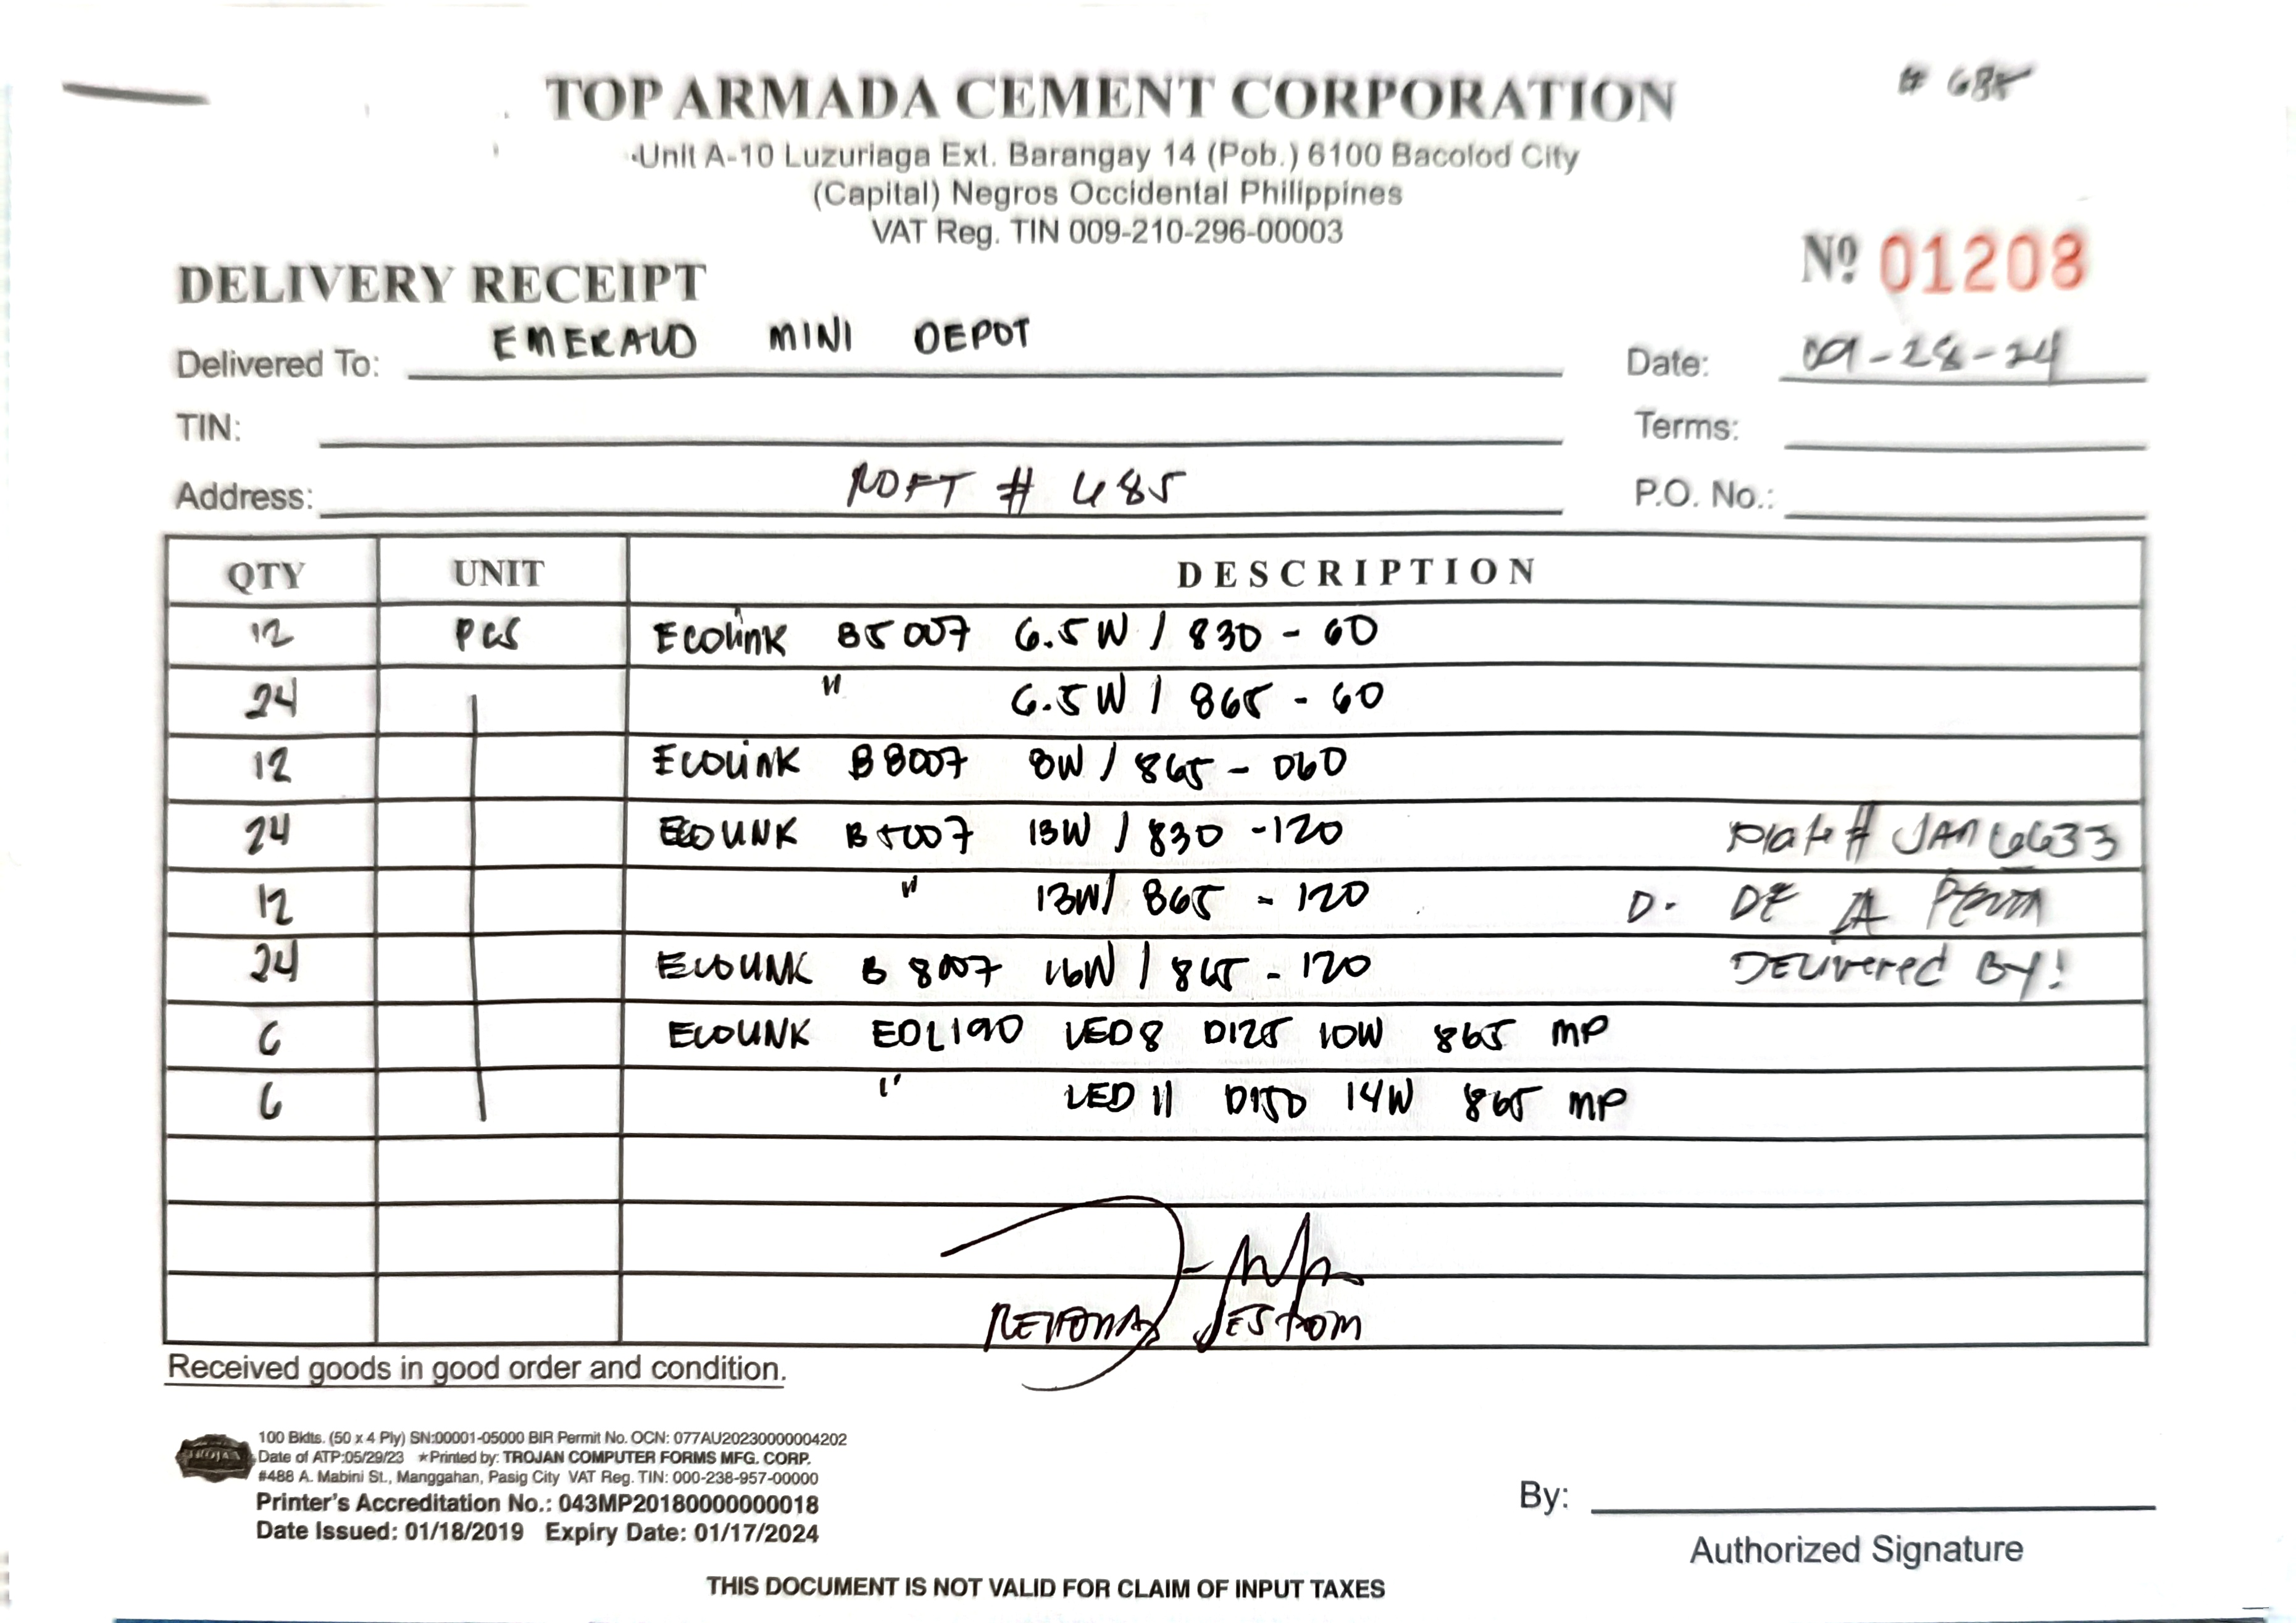 # 685
TOP ARMADA CEMENT CORPORATION
Unit A-10 Luzuriaga Ext. Barangay 14 (Pob.) 6100 Bacolod City
(Capital) Negros Occidental Philippines
VAT Reg. TIN 009-210-296-00003
Nº 01208
DELIVERY RECEIPT
Delivered To: EMERALD MINI DEPOT Date: 09-28-24
TIN: Terms:
Address: RDFT # 685 P.O. No.:
QTY UNIT DESCRIPTION
12 PCS Ecolink B5007 6.5W / 830 - 60
24 " 6.5W / 865 - 60
12 Ecolink B8007 8W / 865 - 060
24 ECOLINK B5007 13W / 830 - 120 Plate # JAN 6633
12 " 13W / 865 - 120 D. DE LA PENA
24 ECOLINK B8007 16W / 865 - 120 Delivered By:
6 ECOLINK EDL190 LED8 D125 10W 865 MP
6 " LED 11 D150 14W 865 MP
Received goods in good order and condition.
100 Bklts. (50 x 4 Ply) SN:00001-05000 BIR Permit No. OCN: 077AU20230000004202
TROJAN Date of ATP:05/29/23 ★Printed by: TROJAN COMPUTER FORMS MFG. CORP.
#488 A. Mabini St., Manggahan, Pasig City VAT Reg. TIN: 000-238-957-00000
Printer's Accreditation No.: 043MP20180000000018
Date Issued: 01/18/2019 Expiry Date: 01/17/2024
By:
Authorized Signature
THIS DOCUMENT IS NOT VALID FOR CLAIM OF INPUT TAXES